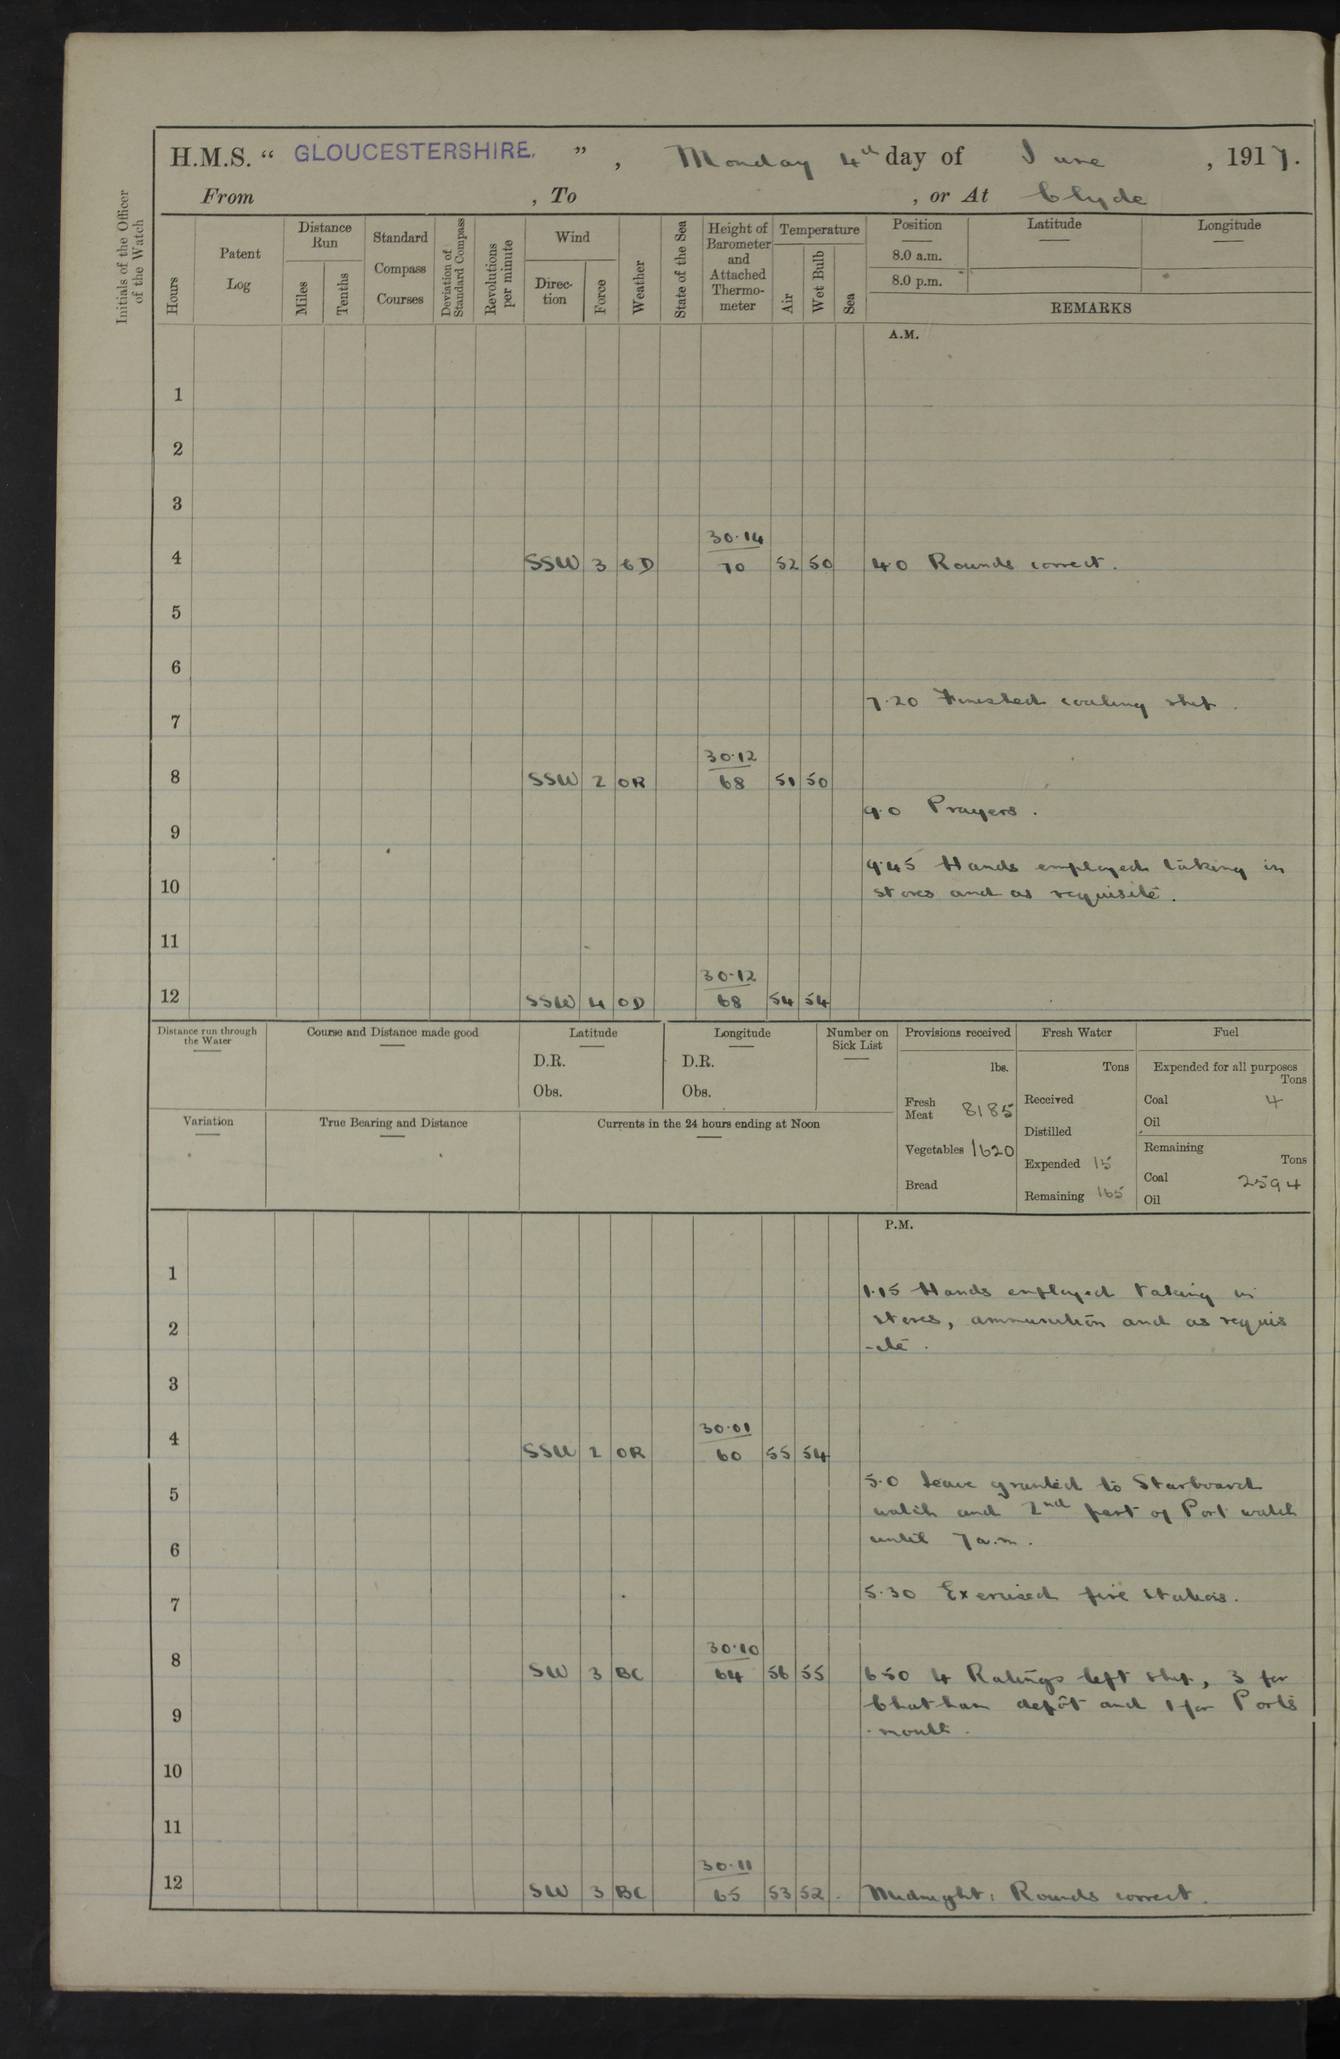 H.M.S. “ GLOUCESTERSHIRE. ” , Monday 4th day of June , 1917.
From , To , or At Clyde
Initials of the Officer of the Watch
Hours
Patent Log
Distance Run
Miles
Tenths
Standard Compass Courses
Deviation of Standard Compass
Revolutions per minute
Wind
Direc-tion
Force
Weather
State of the Sea
Height of Barometer and Attached Thermo-meter
Temperature
Air
Wet Bulb
Sea
Position
8.0 a.m.
8.0 p.m.
Latitude
Longitude
REMARKS
A.M.
1
2
3
30.14
4 SSW 3 6D 70 52 50 4.0 Rounds correct.
5
6
7.20 Finished coaling ship.
7
30.12
8 SSW 2 OR 68 51 50
9.0 Prayers.
9
9.45 Hands employed taking in
10 stores and as requisite.
11
30.12
12 SSW 4 OD 68 54 54
Distance run through the Water
Course and Distance made good
Latitude
D.R.
Obs.
Longitude
D.R.
Obs.
Number on Sick List
Provisions received
lbs.
Fresh Meat 8185
Vegetables 1620
Bread
Fresh Water
Tons
Received
Distilled
Expended 15
Remaining 165
Fuel
Expended for all purposes
Tons
Coal 4
Oil
Remaining
Tons
Coal 2594
Oil
Variation
True Bearing and Distance
Currents in the 24 hours ending at Noon
P.M.
1
1.15 Hands employed taking in
2 stores, ammunition and as requis
-ite.
3
30.01
4 SSW 2 OR 60 55 54
5.0 Leave granted to Starboard
5 watch and 2nd part of Port watch
6 until 7 a.m.
5.30 Exercised fire stations.
7
30.10
8 SW 3 BC 64 56 55 6.50 4 Ratings left ship, 3 for
9 Chatham depôt and 1 for Ports
-mouth.
10
11
30.11
12 SW 3 BC 65 53 52 Midnight: Rounds correct.